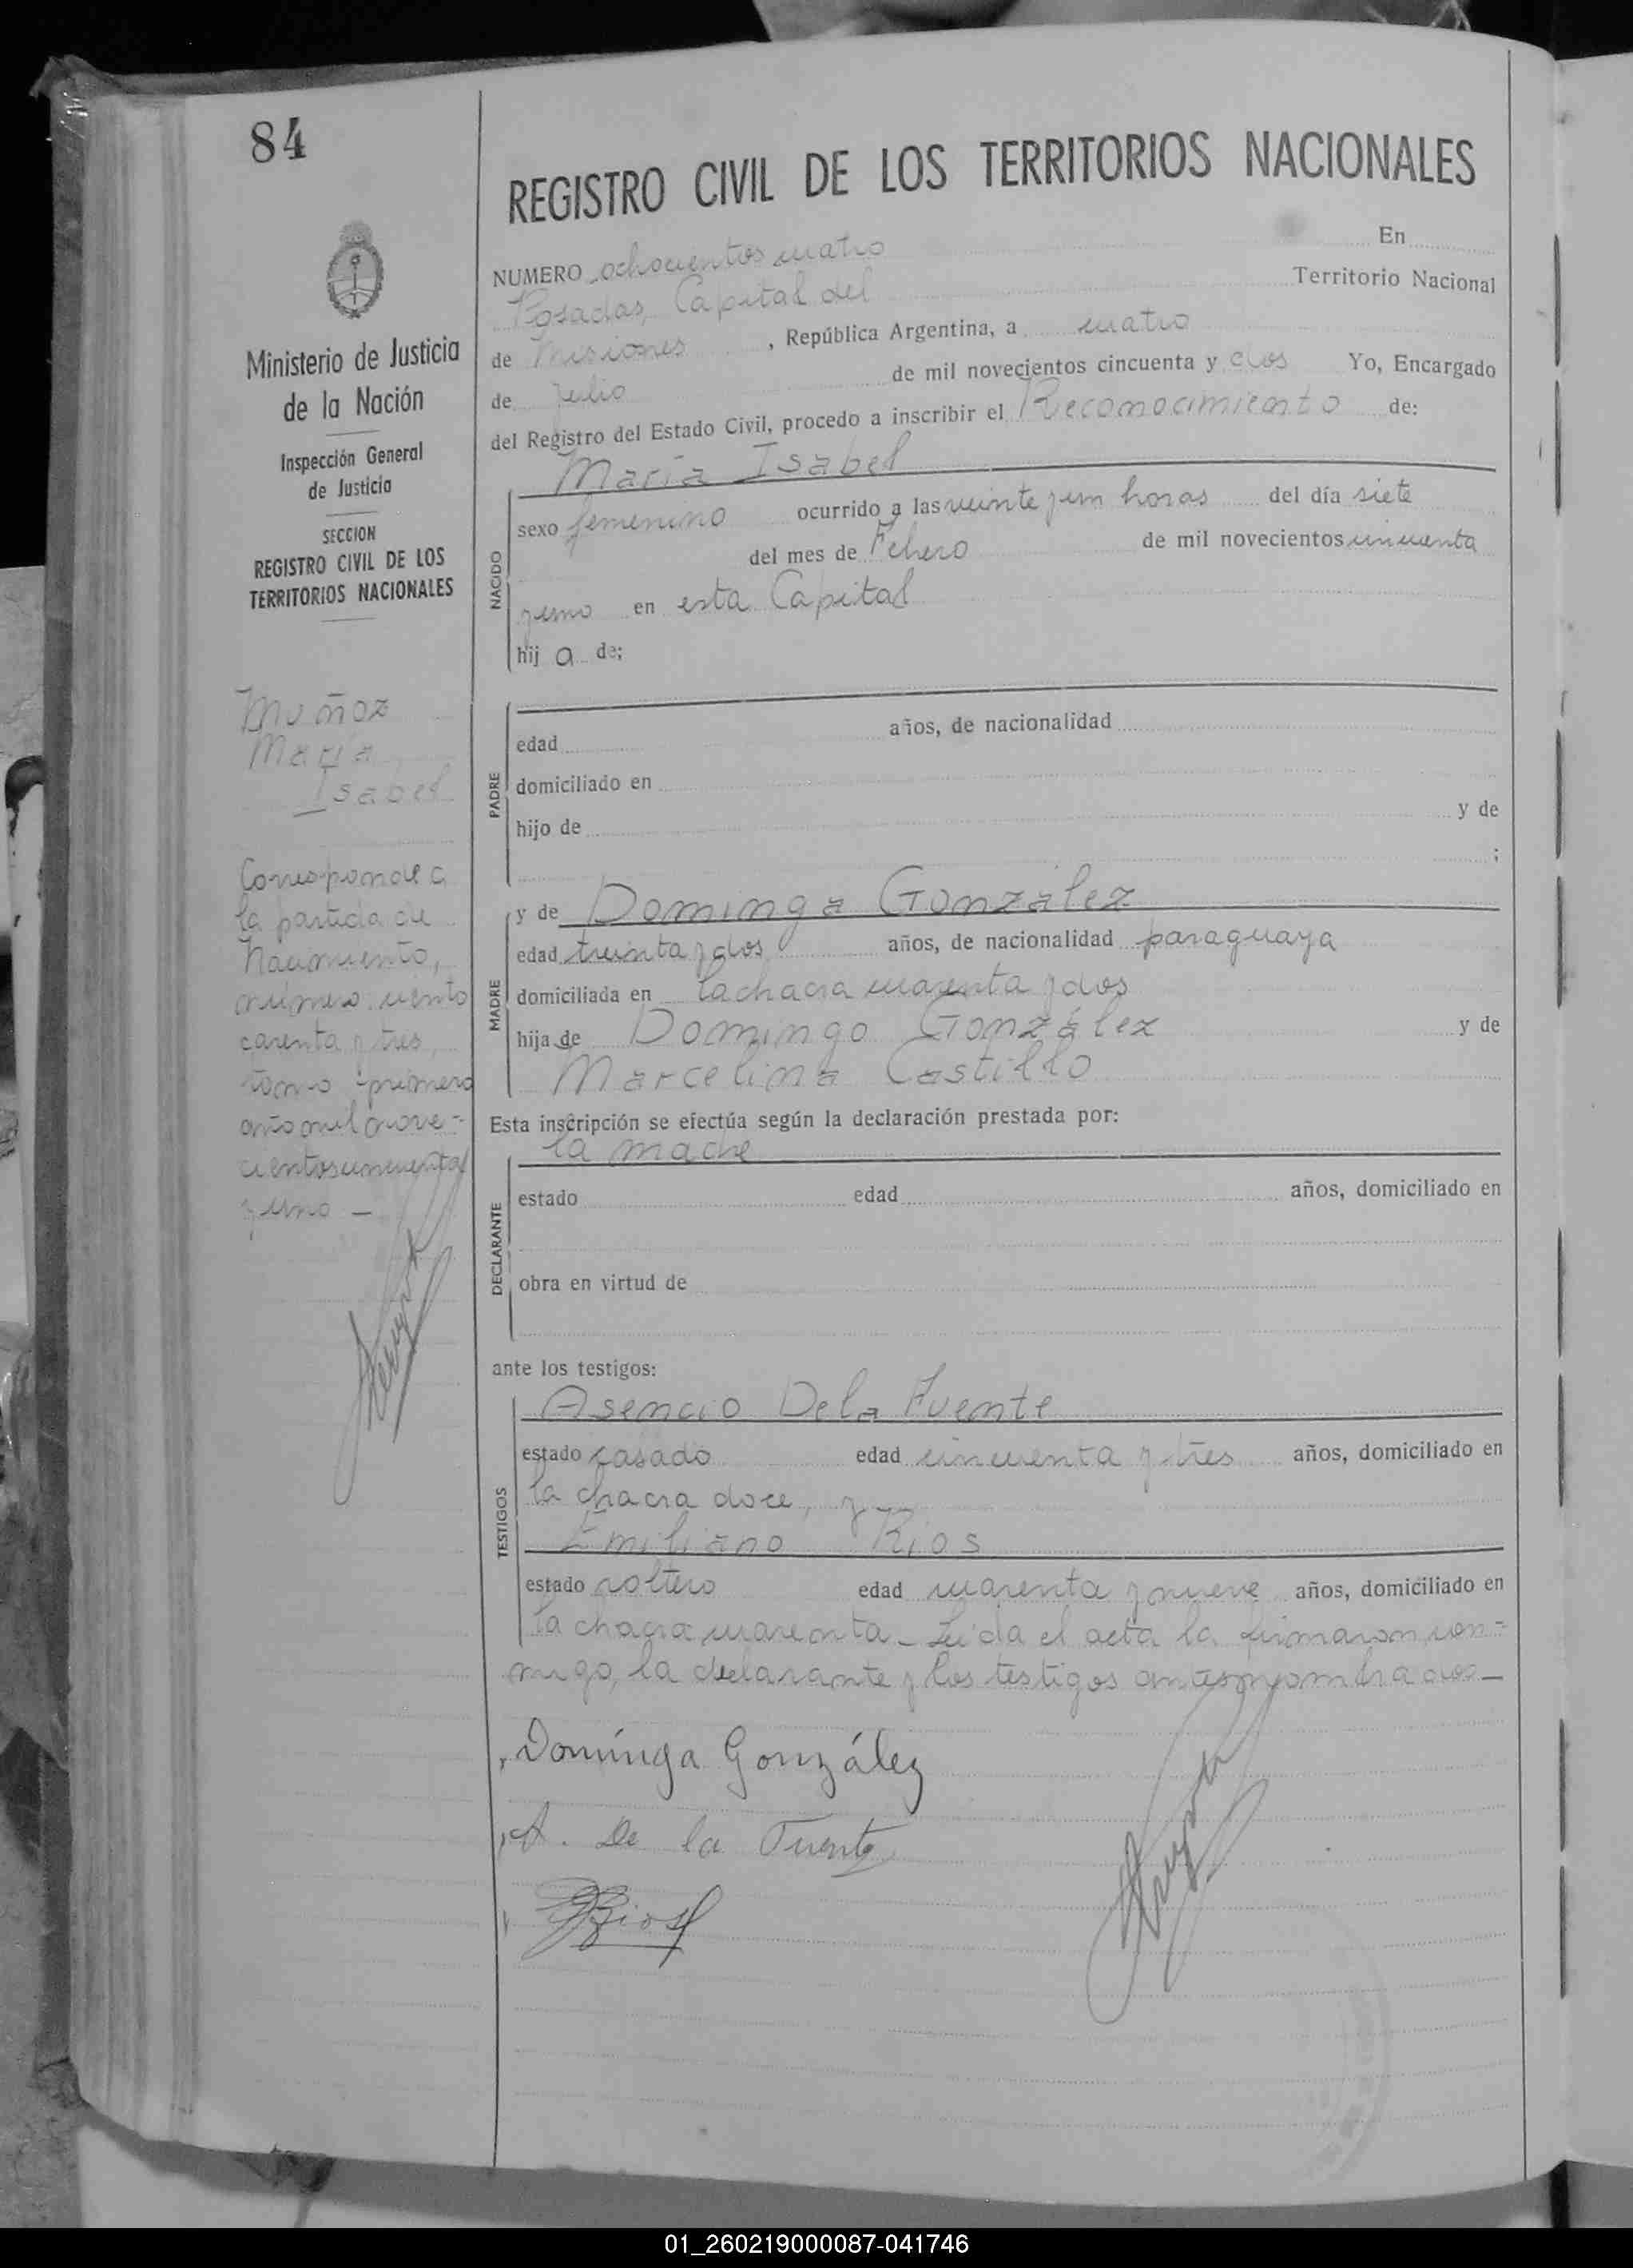 84
REGISTRO CIVIL DE LOS TERRITORIOS NACIONALES
Ministerio de Justicia
de la Nación
Inspección General
de Justicia
SECCION
REGISTRO CIVIL DE LOS
TERRITORIOS NACIONALES
Muñoz
María
Isabel
Corresponde a
la partida de
Nacimiento,
número: ciento
carenta y tres,
tomo primero
año mil nove=
cientos cincuenta
y uno —
NUMERO ochocientos cuatro En
Posadas, Capital del Territorio Nacional
de Misiones, República Argentina, a cuatro
de Julio de mil novecientos cincuenta y dos Yo, Encargado
del Registro del Estado Civil, procedo a inscribir el Reconocimiento de:
María Isabel
NACIDO
sexo femenino ocurrido a las veinte y un horas del día siete
del mes de Febrero de mil novecientos cincuenta
y uno en esta Capital
hij a de;
PADRE
edad años, de nacionalidad
domiciliado en
hijo de y de
;
MADRE
y de Dominga González
edad treinta y dos años, de nacionalidad paraguaya
domiciliada en la chacra cuarenta y dos
hija de Domingo González y de
Marcelina Castillo
Esta inscripción se efectúa según la declaración prestada por:
la madre
DECLARANTE
estado edad años, domiciliado en
obra en virtud de
ante los testigos:
TESTIGOS
Asencio De la Fuente
estado casado edad cincuenta y tres años, domiciliado en
la chacra doce, y
Emiliano Rios
estado soltero edad cuarenta y nueve años, domiciliado en
la chacra cuarenta - Leída el acta la firmaron con=
migo, la declarante y los testigos antes nombrados—
Dominga González
A. De la Fuente
Rios
01_260219000087-041746